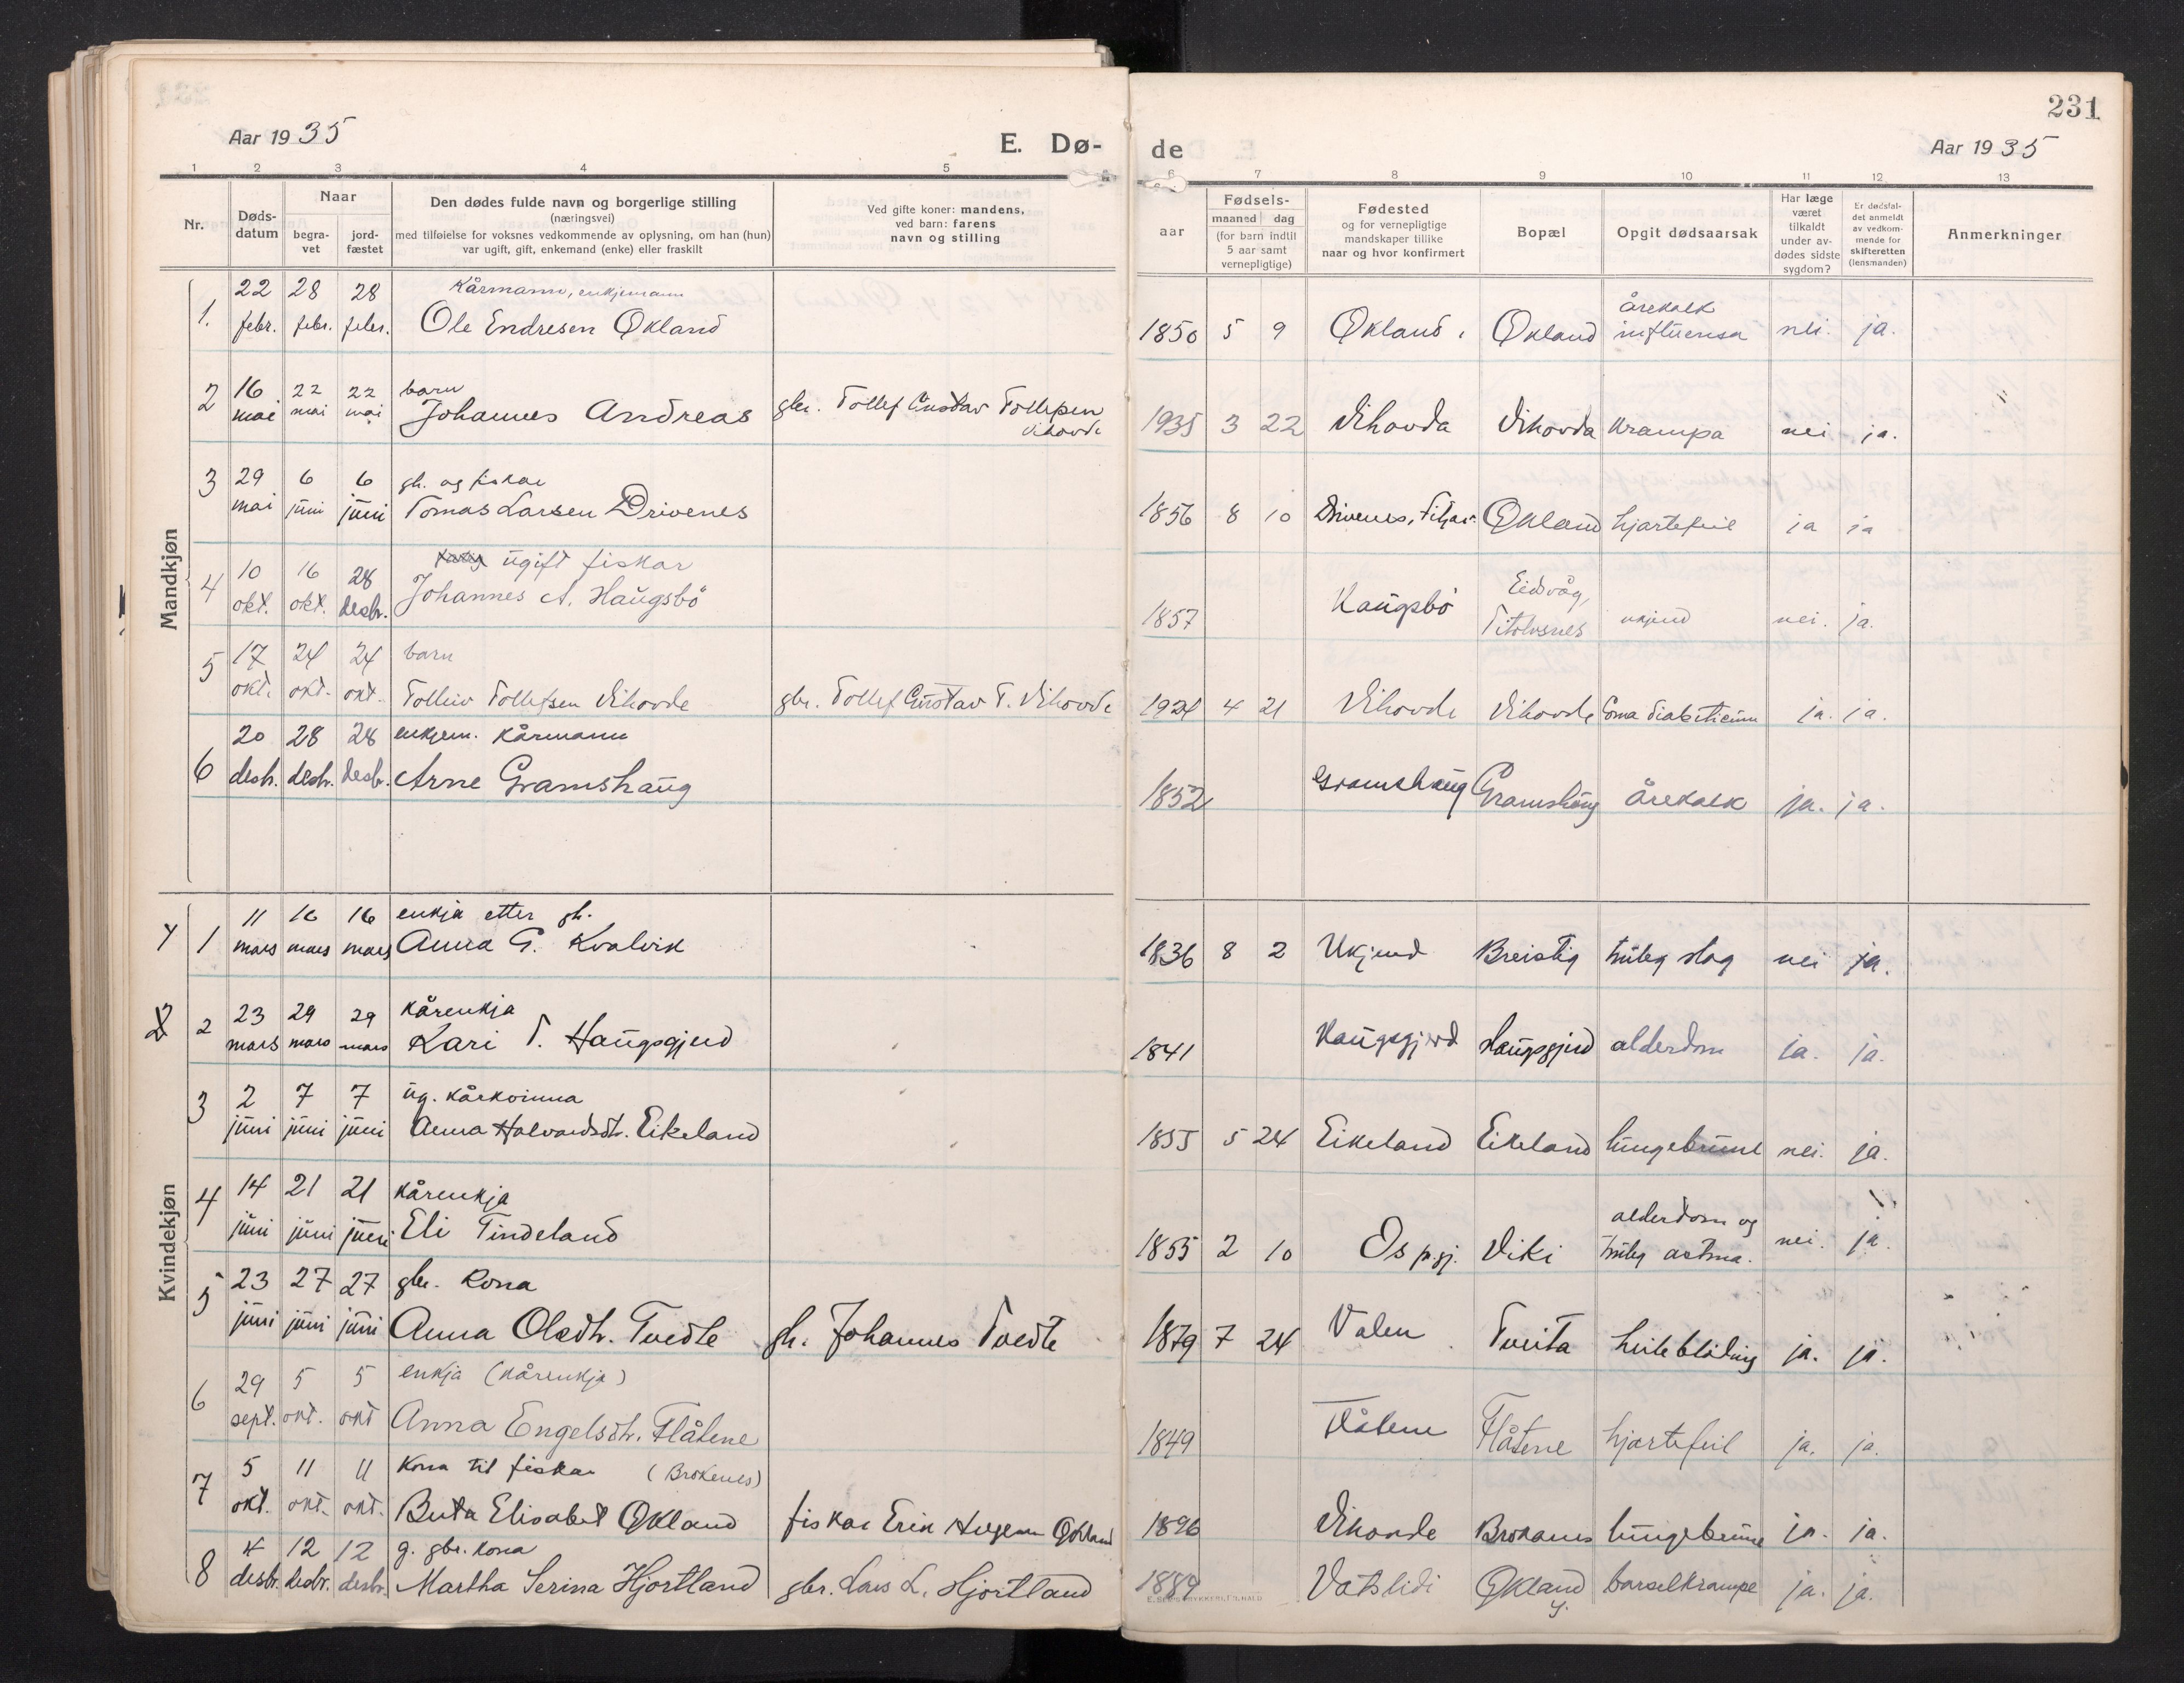 231
Aar 1935 E. Dø- de Aar 1935
1 2 3 4 5 6 7 8 9 10 11 12 13
Nr.
Døds-
datum
Naar
begra-
vet
jord-
fæstet
Den dødes fulde navn og borgerlige stilling
(næringsvei)
med tilføielse for voksnes vedkommende av oplysning, om han (hun)
var ugift, gift, enkemand (enke) eller fraskilt
Ved gifte koner: mandens,
ved barn: farens
navn og stilling
aar
Fødsels-
maaned dag
(for barn indtil
5 aar samt
vernepligtige)
Fødested
og for vernepligtige
mandskaper tillike
naar og hvor konfirmert
Bopæl
Opgit dødsaarsak
Har læge
været
tilkaldt
under av-
dødes sidste
sygdom?
Er dødsfal-
det anmeldt
av vedkom-
mende for
skifteretten
(lensmanden)
Anmerkninger
Mandkjøn
22 28 28 Kårmann, enkjemann årekalk
1. febr. febr. febr. Ole Endresen Økland 1850 5 9 Økland. Økland influensa nei. ja.
16 22 22 barn
2 mai mai mai Johannes Andreas gbr. Tollef Gustav Tollefsen
Vihovde 1935 3 22 Vihovda Vihovda Krampa nei ja.
29 6 6 gb. og fiskar
3 mai juni juni Tomas Larsen Drivenes 1856 8 10 Drivenes, Fitjar. Økland hjartefeil ja ja
10 16 28 ugift fiskar Eidsvåg,
4 okt. okt. desbr. Johannes A. Haugsbö 1857 Haugsbö Titelsnes ukjend nei. ja.
17 24 24 barn
5 okt. okt. okt. Tolleiv Tollefsen Vihovde gbr. Tollef Gustav T. Vihovde 1921 4 21 Vihovde Vihovde Coma diabeticum ja. ja.
20 28 28 enkjem. kårmann
6 desbr. desbr. desbr. Arne Gramshaug 1852 Gramshaug Gramshaug årekalk ja. ja.
Kvindekjøn
11 16 16 enkja etter gb.
1 mars mars mars Anna G. Kvalvik 1836 8 2 Ukjend Breistig truleg slag nei ja.
23 29 29 kårenkja
2 2 mars mars mars Kari T. Haugsgjerd 1841 Haugsgjerd Haugsgjerd alderdom ja. ja.
2 7 7 ug. kårkvinna
3 juni juni juni Anna Halvardsdt. Eikeland 1855 5 24 Eikeland Eikeland lungebrune nei. ja.
14 21 21 kårenkja alderdom og
4 juni juni juni Eli Tindeland 1855 2 10 Os p.gj. Viki truleg astma. nei. ja.
23 27 27 gbr. kona
5 juni juni juni Anna Olsdtr. Tvedte gb. Johannes Tvedte 1879 7 24 Valen Tveita heilebløding ja. ja.
29 5 5 enkja (kårenkja)
6 sept. okt. okt Anna Engelsdtr. Flåtene 1849 Flåtene Flåtene hjartefeil ja. ja.
5 11 11 kona til fiskar (Brokenes)
7 okt. okt. okt. Berta Elisabet Økland fiskar Erik Økland 1896 Vihovde Brokanes lungebrune ja. ja.
4 12 12 g. gbr. kona
8 desbr. desbr. desbr. Martha Serina Hjortland gbr. Lars L. Hjortland 1889 Vatslidi Økland y. barselkrampe ja. ja.